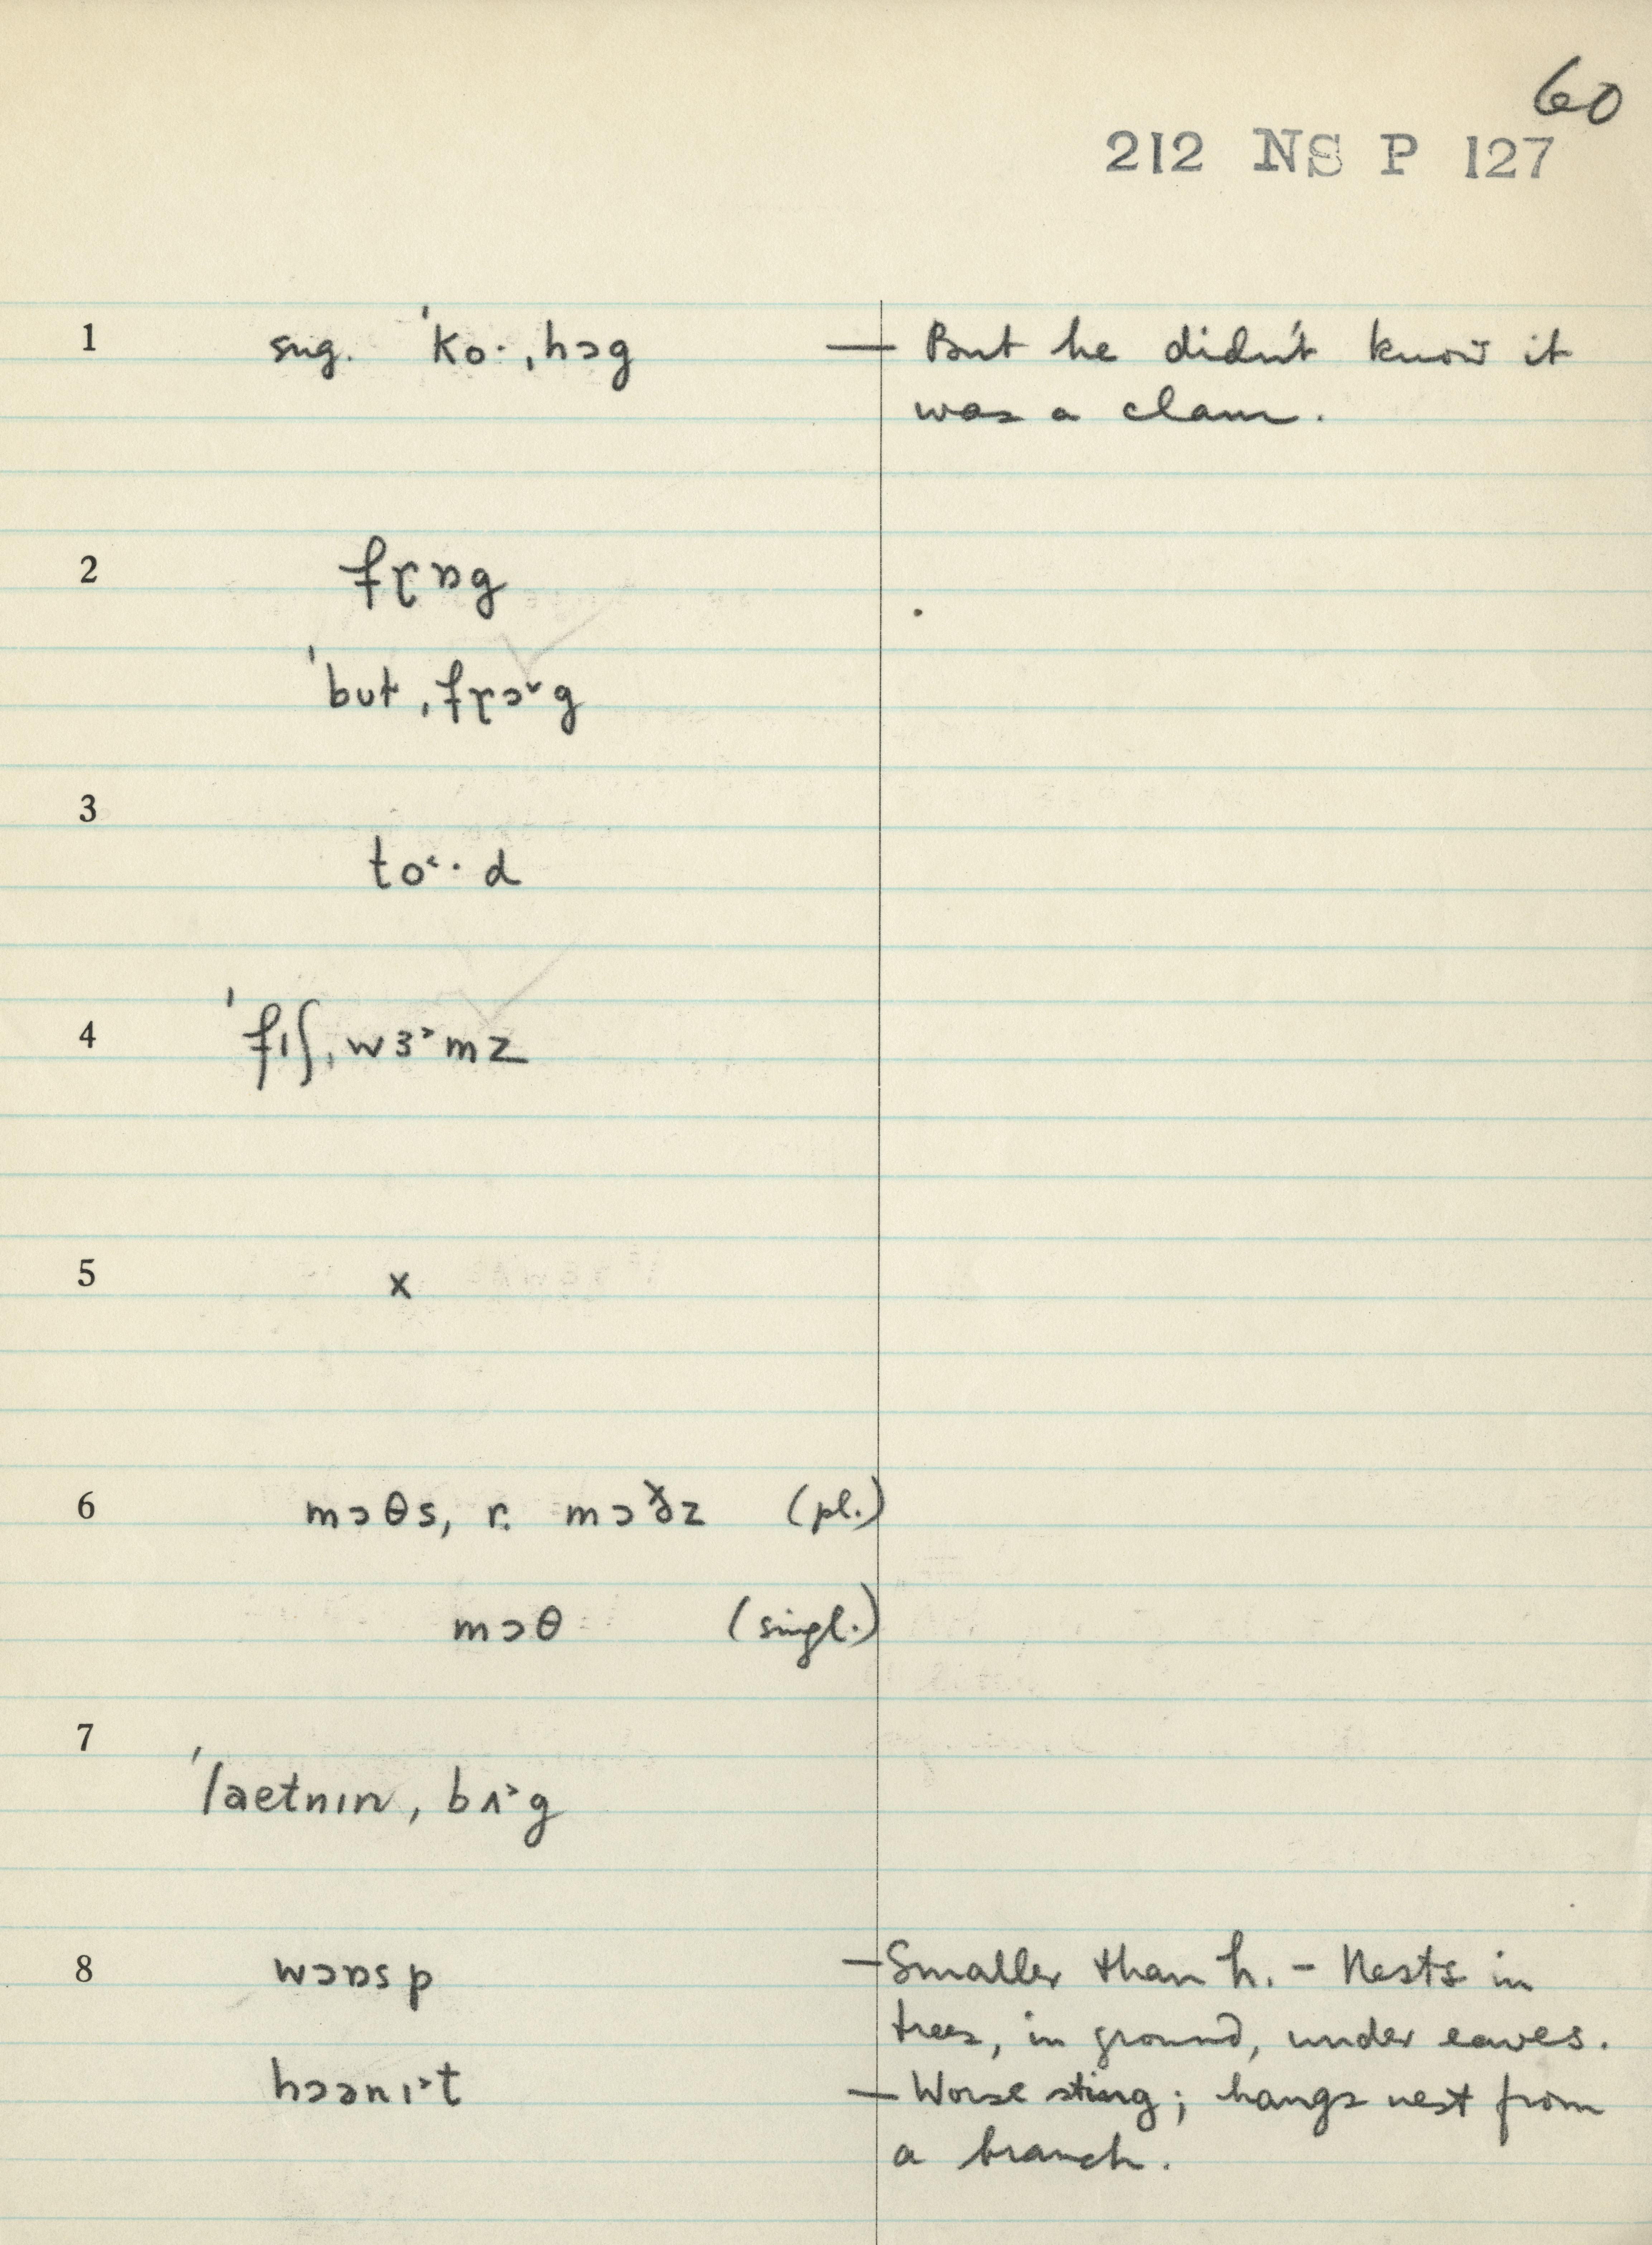 60
212 NS P 127
1 sug. ˈko·ˌhɔg — But he didn't know it
was a clam.
2 frɒg
ˈbutˌfrɔ˅g
3 to˂·d
4 ˈfɪʃˌwɜ˃mz
5 x
6 mɔθs, r. mɔðz (pl.)
mɔθ (singl.)
7 ˈlaetnɪnˌbʌ˃g
8 wɔɒsp — Smaller than h. – Nests in
trees, in ground, under eaves.
hɔənɪ˃t — Worse sting; hangs nest from
a branch.